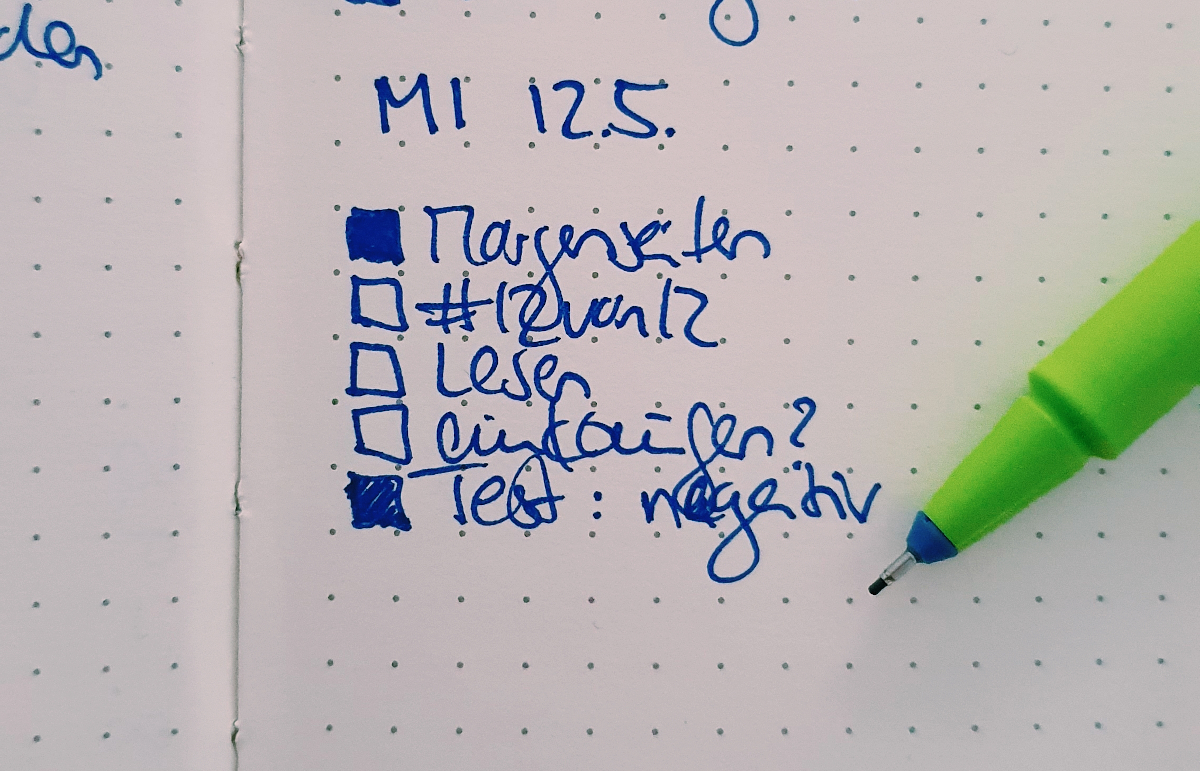 den
MI 12.5.
Morgenseiten
#12von12
Lesen
einkaufen?
Test: negativ